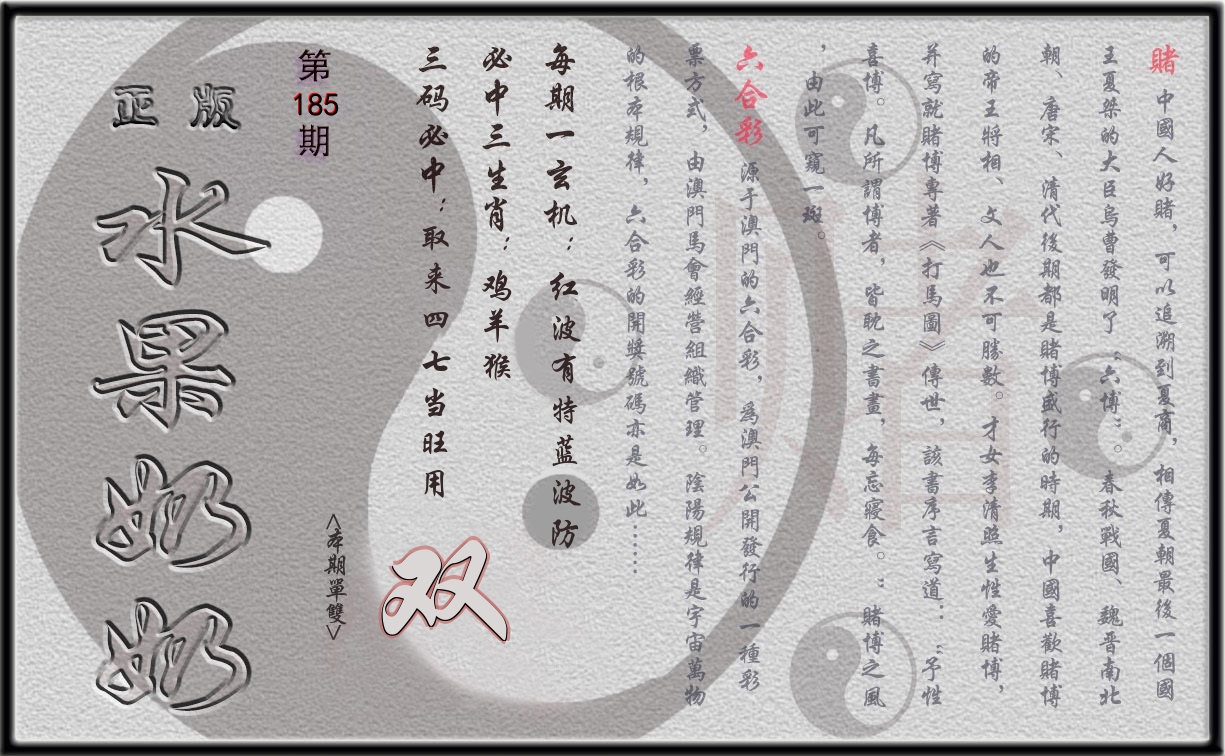 賭 中國人好賭，可以追溯到夏商，相傳夏朝最後一個國
王夏桀的大臣烏曹發明了“六博”。春秋戰國、魏晋南北
朝、唐宋、清代後期都是賭博盛行的時期，中國喜歡賭博
的帝王將相、文人也不可勝數。才女李清照生性愛賭博，
并寫就賭博專著《打馬圖》傳世，該書序言寫道：“予性
喜博。凡所謂博者，皆耽之書畫，每忘寢食。”賭博之風
，由此可窺一斑。
六合彩 源于澳門的六合彩，為澳門公開發行的一種彩
票方式，由澳門馬會經營組織管理。陰陽規律是宇宙萬物
的根本規律，六合彩的開獎號碼亦是如此......
每期一玄机：红波有特蓝波防
必中三生肖：鸡羊猴
三码必中：取来四七当旺用
双
<本期單雙>
第185期
正版
水果奶奶
賭